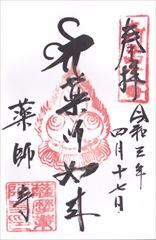 奉拝
令和三年
四月十七日
薬師如来
薬師寺